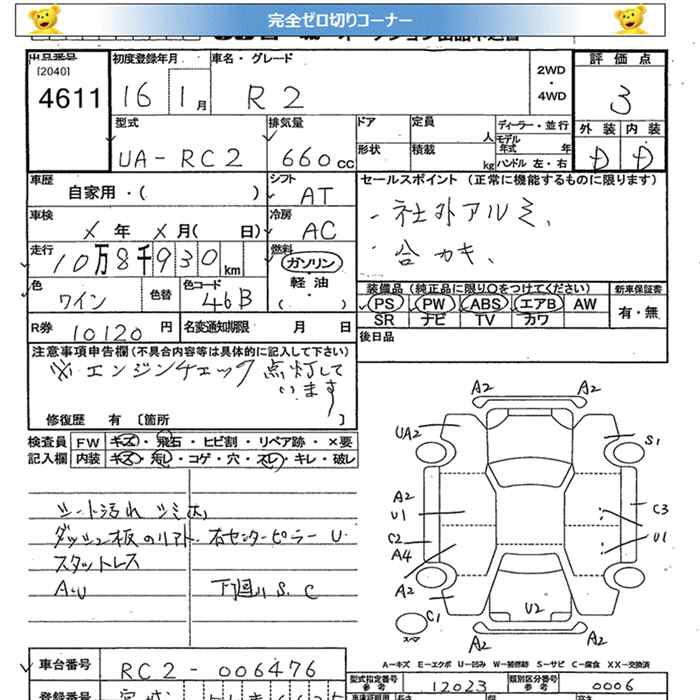 完全ゼロ切りコーナー
出品番号 初度登録年月 車名・グレード 評価点
[2040]
4611 16 1月 R2 2WD・4WD 3
外装 内装
D D
型式 排気量 ドア 定員 人 ディーラー・並行
UA-RC2 660cc 形状 積載 kg モデル年式 年
ハンドル 左・右
車歴 シフト セールスポイント (正常に機能するものに限ります)
自家用・( ) AT
車検 冷房 社外アルミ、
X年 X月( 日) AC 合カギ、
走行 燃料
10万8千930km ガソリン・軽油・( )
色 色替 色コード 装備品 (純正品に限り○をつけてください) 新車保証書
ワイン 46B PS PW ABS エアB AW 有・無
SR ナビ TV カワ
R券 10120円 名変通知期限 月 日 後日品
注意事項申告欄 (不具合内容等は具体的に記入して下さい)
※エンジンチェック点灯して
います
修復歴 有 [箇所 ]
検査員 FW キズ・飛石・ヒビ割・リペア跡・×要
記入欄 内装 キズ・汚れ・コゲ・穴・スレ・キレ・破レ
シート汚れ
スタットレス
A.U 下廻りS.C
A2 A2
UA2 S1
A2
U1 C3
C2 U1
A4
A2 A2
C1 U2
スペア A2 A2
A-キズ E-エクボ U-凹み W-補修跡 S-サビ C-腐食 XX-交換済
車台番号 RC2-006476
型式指定番号 参考 12023 類別区分番号 参考 0006
登録番号